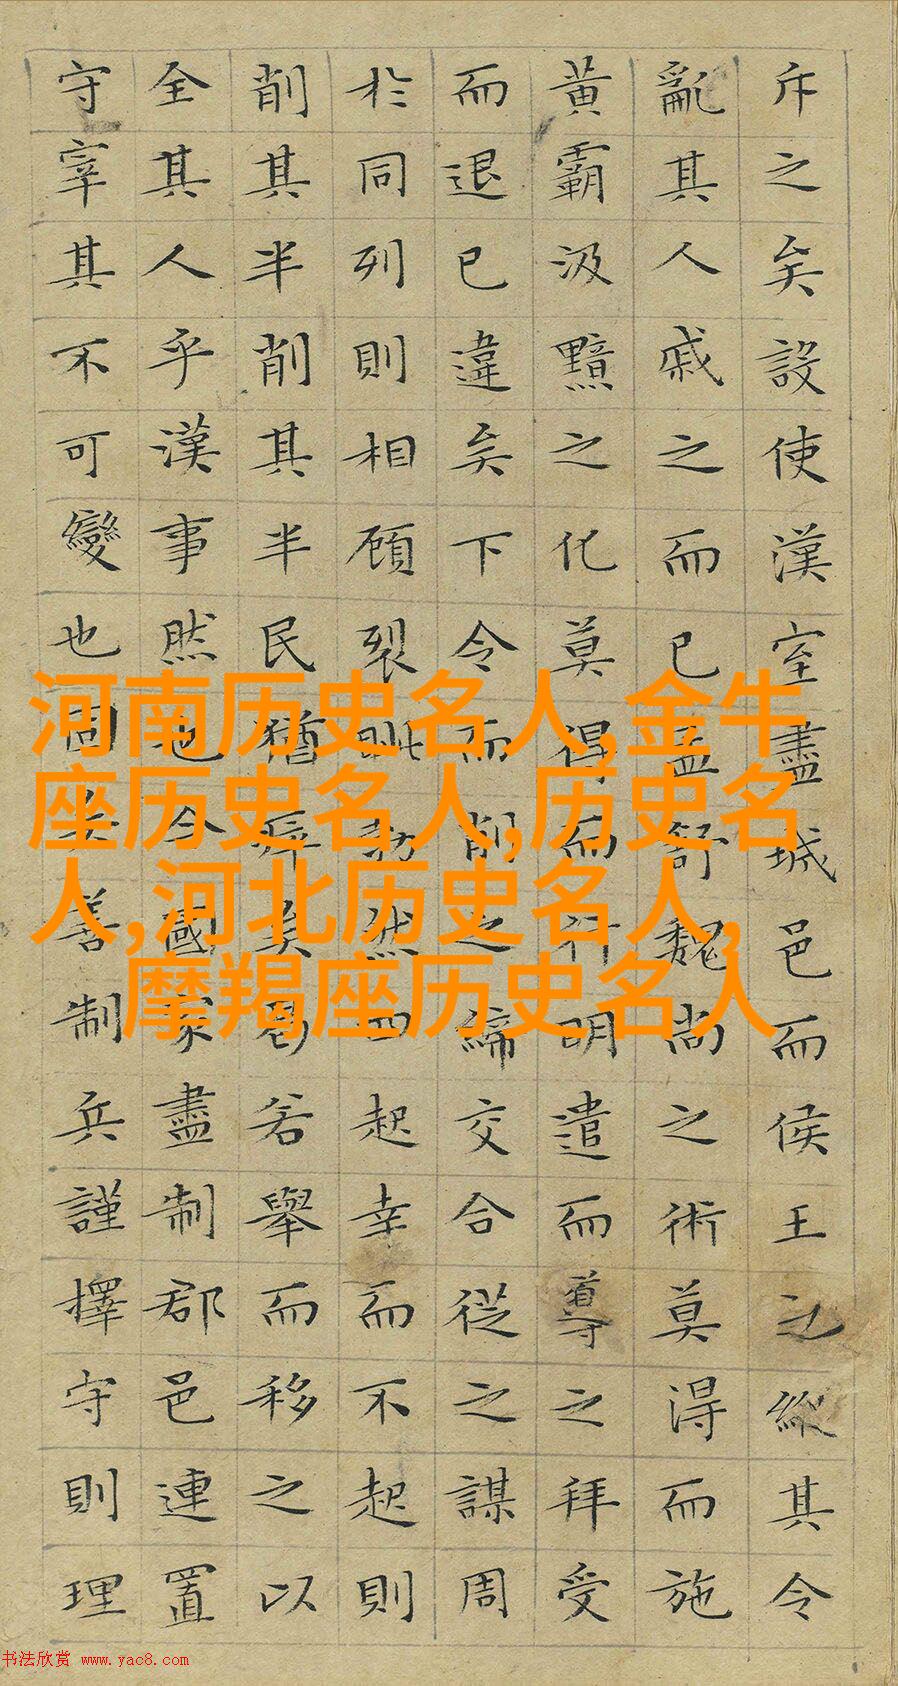 斥之矣設使漢室盡城邑而侯王之縱其令
亂其人戚之而已孟舒魏尚之術莫得而施
黃霸汲黯之化莫得而行明遣而導之拜受
而退已違矣下令而削之締交合從之謀周
於同列則相顧裂眦勃然四起幸而不起則
削其半削其半民猶瘁矣曷若舉而移之以
全其人乎漢事然也今國家盡制郡邑連置
守宰其不可變也固矣善制兵謹擇守則理
河南历史名人,金牛
座历史名人,历史名
人,河北历史名人,
摩羯座历史名人
书法欣赏 www.yac8.com